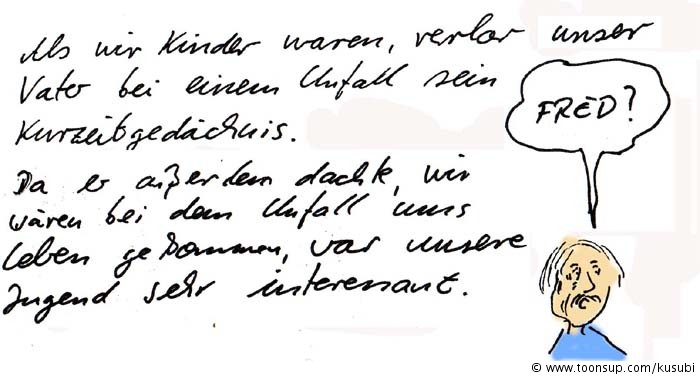 Als wir Kinder waren, verlor unser
Vater bei einem Unfall sein
Kurzeitgedächnis.
Da er außerdem dachte, wir
wären bei dem Unfall ums
Leben gekommen, war unsere
Jugend sehr interessant.
FRED?
© www.toonsup.com/kusubi